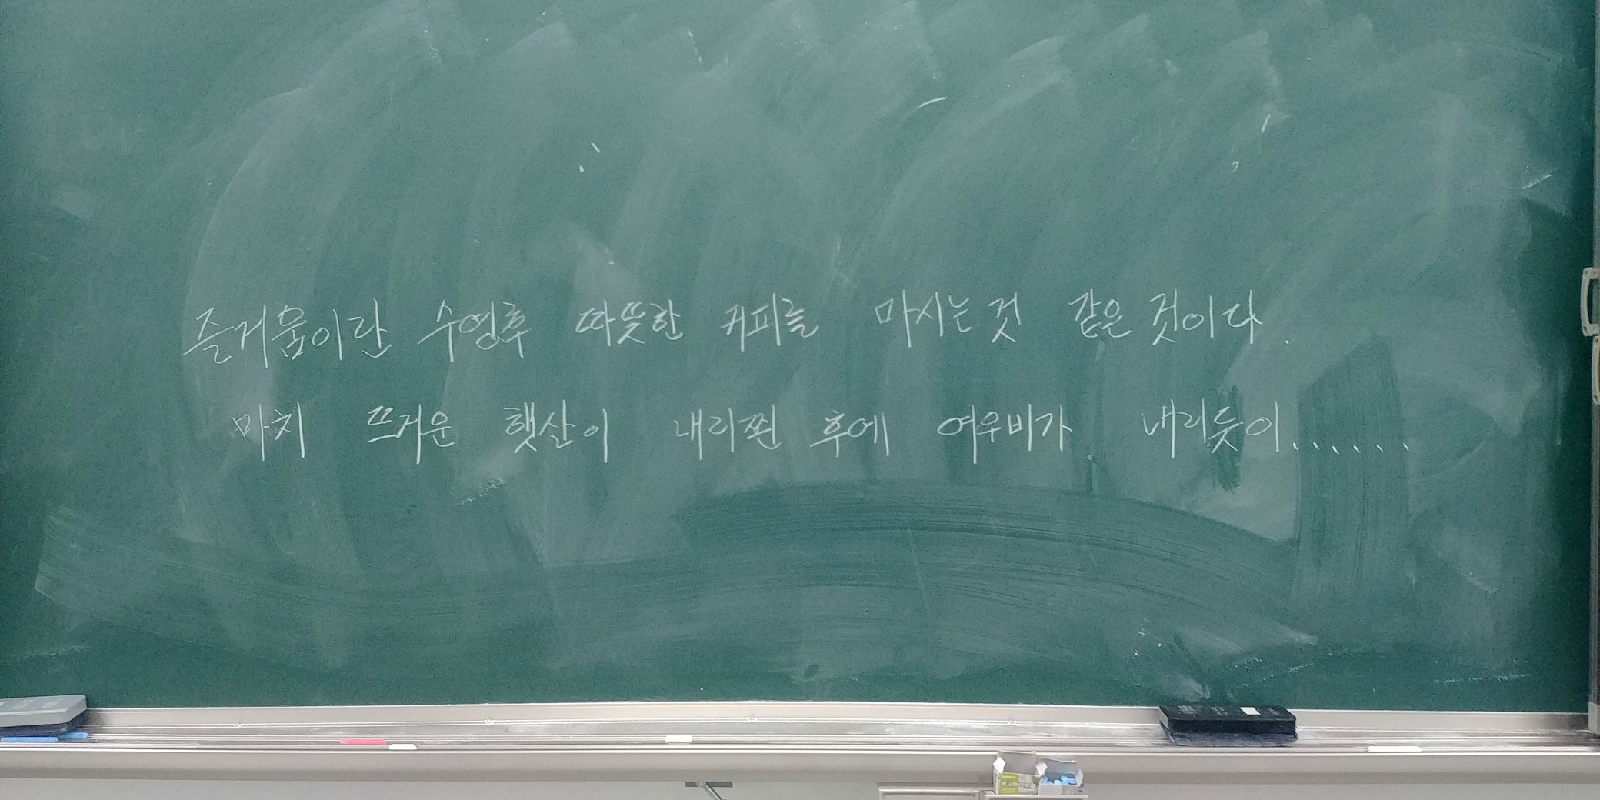 즐거움이란 수영후 따뜻한 커피를 마시는것 같은것이다.
마치 뜨거운 햇산이 내리쬔 후에 여우비가 내리듯이......